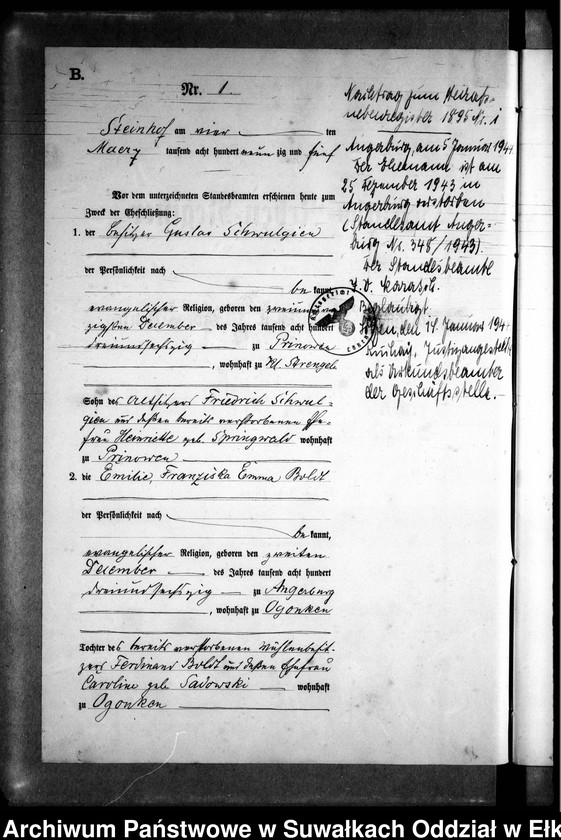 B.
Nr. 1.
Steinhof am vier ten
Maerz tausend acht hundert neun zig und fünf
Vor dem unterzeichneten Standesbeamten erschienen heute zum
Zweck der Eheschließung:
1. der Besitzer Gustav Schwulgien
der Persönlichkeit nach
be kannt,
evangelischer Religion, geboren den zweiund zwan-
zigsten Dezember des Jahres tausend acht hundert
dreiundsechszig zu Prinowen
, wohnhaft zu Kl Strengeln
Sohn des Altsitzers Friedrich Schwul-
gien und dessen bereits verstorbenen Ehe-
frau Heinriette geb. Springwald wohnhaft
zu Prinowen
2. die Emilie Franziska Emma Boldt
der Persönlichkeit nach
be kannt,
evangelischer Religion, geboren den zweiten
Dezember des Jahres tausend acht hundert
dreiundsechszig zu Angerburg
, wohnhaft zu Ogonken
Tochter des bereits verstorbenen Mühlenbesit-
zers Ferdinand Boldt und dessen Ehefrau
Caroline geb. Sadowski wohnhaft
zu Ogonken
Nachtrag zum Heirats-
nebenregister 1895 Nr. 1
Angerburg, am 5 Januar 1944
Der Ehemann ist am
25 Dezember 1943 in
Angerburg verstorben
(Standesamt Anger-
burg Nr. 348/1943)
Der Standesbeamte
I. V. Karasch.
Beglaubigt.
den 14 Januar 194
Justizangestellte
als Urkundsbeamter
der Geschäftsstelle.
Archiwum Państwowe w Suwałkach Oddział w Ełk